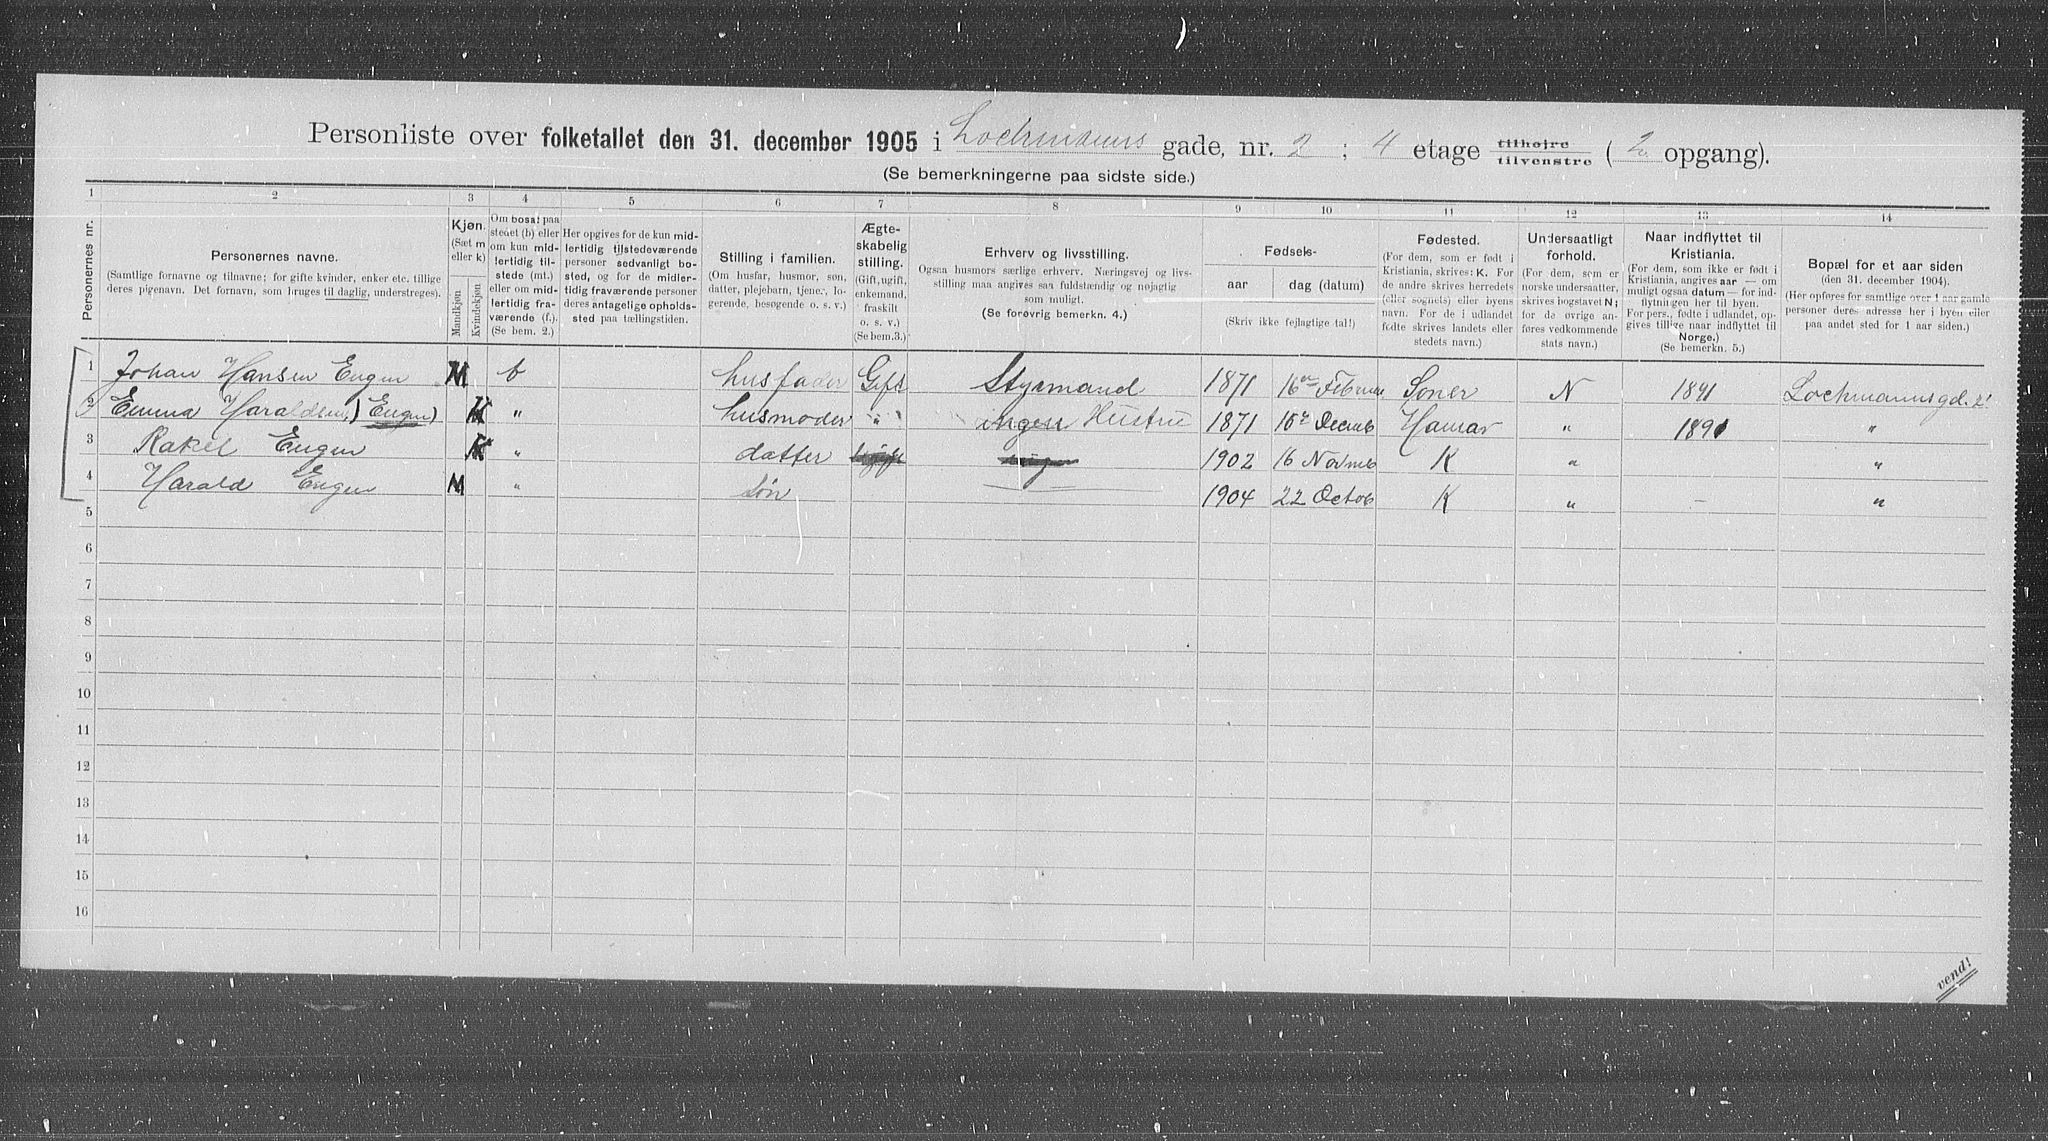 Personliste over folketallet den 31. december 1905 i Lochmanns gade, nr. 2 ; 4 etage tilhøjre tilvenstre ( 2 opgang).
(Se bemerkningerne paa sidste side.)
1 2 3 4 5 6 7 8 9 10 11 12 13 14
Personernes nr.
Personernes navne.
(Samtlige fornavne og tilnavne; for gifte kvinder, enker etc. tillige
deres pigenavn. Det fornavn, som bruges til daglig, understreges).
Kjøn.
(Sæt m
eller k)
Mandkjøn
Kvindekjøn
Om bosat paa
stedet (b) eller
om kun mid-
lertidig til-
stede (mt.)
eller om mid-
lertidig fra-
værende (f.).
(Se bem. 2.)
Her opgives for de kun mid-
lertidig tilstedeværende
personer sedvanligt bo-
sted, og for de midler-
tidig fraværende personer
deres antagelige opholds-
sted paa tællingstiden.
Stilling i familien.
(Om husfar, husmor, søn,
datter, plejebarn, tjene., lo-
gerende, besøgende o. s. v.)
Ægte-
skabelig
stilling.
(Gift, ugift,
enkemand,
fraskilt
o. s. v.)
(Se bem.3.)
Erhverv og livsstilling.
Ogsaa husmors særlige erhverv. Næringsvej og livs-
stilling maa angives saa fuldstændig og nøjagtig
som muligt.
(Se forøvrig bemerkn. 4.)
Fødsels-
aar
dag (datum)
(Skriv ikke fejlagtige tal!)
Fødested.
(For dem, som er født i
Kristiania, skrives: K. For
de andre skrives herredets
(eller sognets) eller byens
navn. For de i udlandet
fødte skrives landets eller
stedets navn.)
Undersaatligt
forhold.
(For dem, som er
norske undersaatter,
skrives bogstavet N;
for de øvrige an-
føres vedkommende
stats navn.)
Naar indflyttet til
Kristiania.
(For dem, som ikke er født i
Kristiania, angives aar — om
muligt ogsaa datum — for ind-
flytningen her til byen.
For pers., fødte i udlandet, op-
gives tillige naar indflyttet til
Norge.)
(Se bemerkn. 5.)
Bopæl for et aar siden
(den 31. december 1904).
(Her opføres for samtlige over 1 aar gamle
personer deres adresse her i byen eller
paa andet sted for 1 aar siden.)
1 Johan Hansen Engen M b husfader Gift Styrmand 1871 16 Februar Soner N 1891 Lochmannsgd. 2
2 Emma Haraldsen,) Engen) K " husmoder " ingen Hustru 1871 15 Decmb Hamar " 1891 "
3 Rakel Engen K " datter ugift 1902 16 Novmb K " "
4 Harald Engen M " søn 1904 22 Octob K " — "
5
6
7
8
9
10
11
12
13
14
15
16
vend!